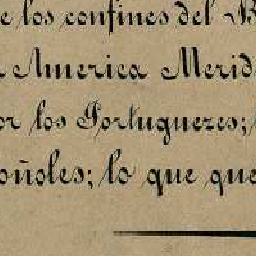 e los confines del B
America Merid
or los Portuguezes;
oñoles; lo que que